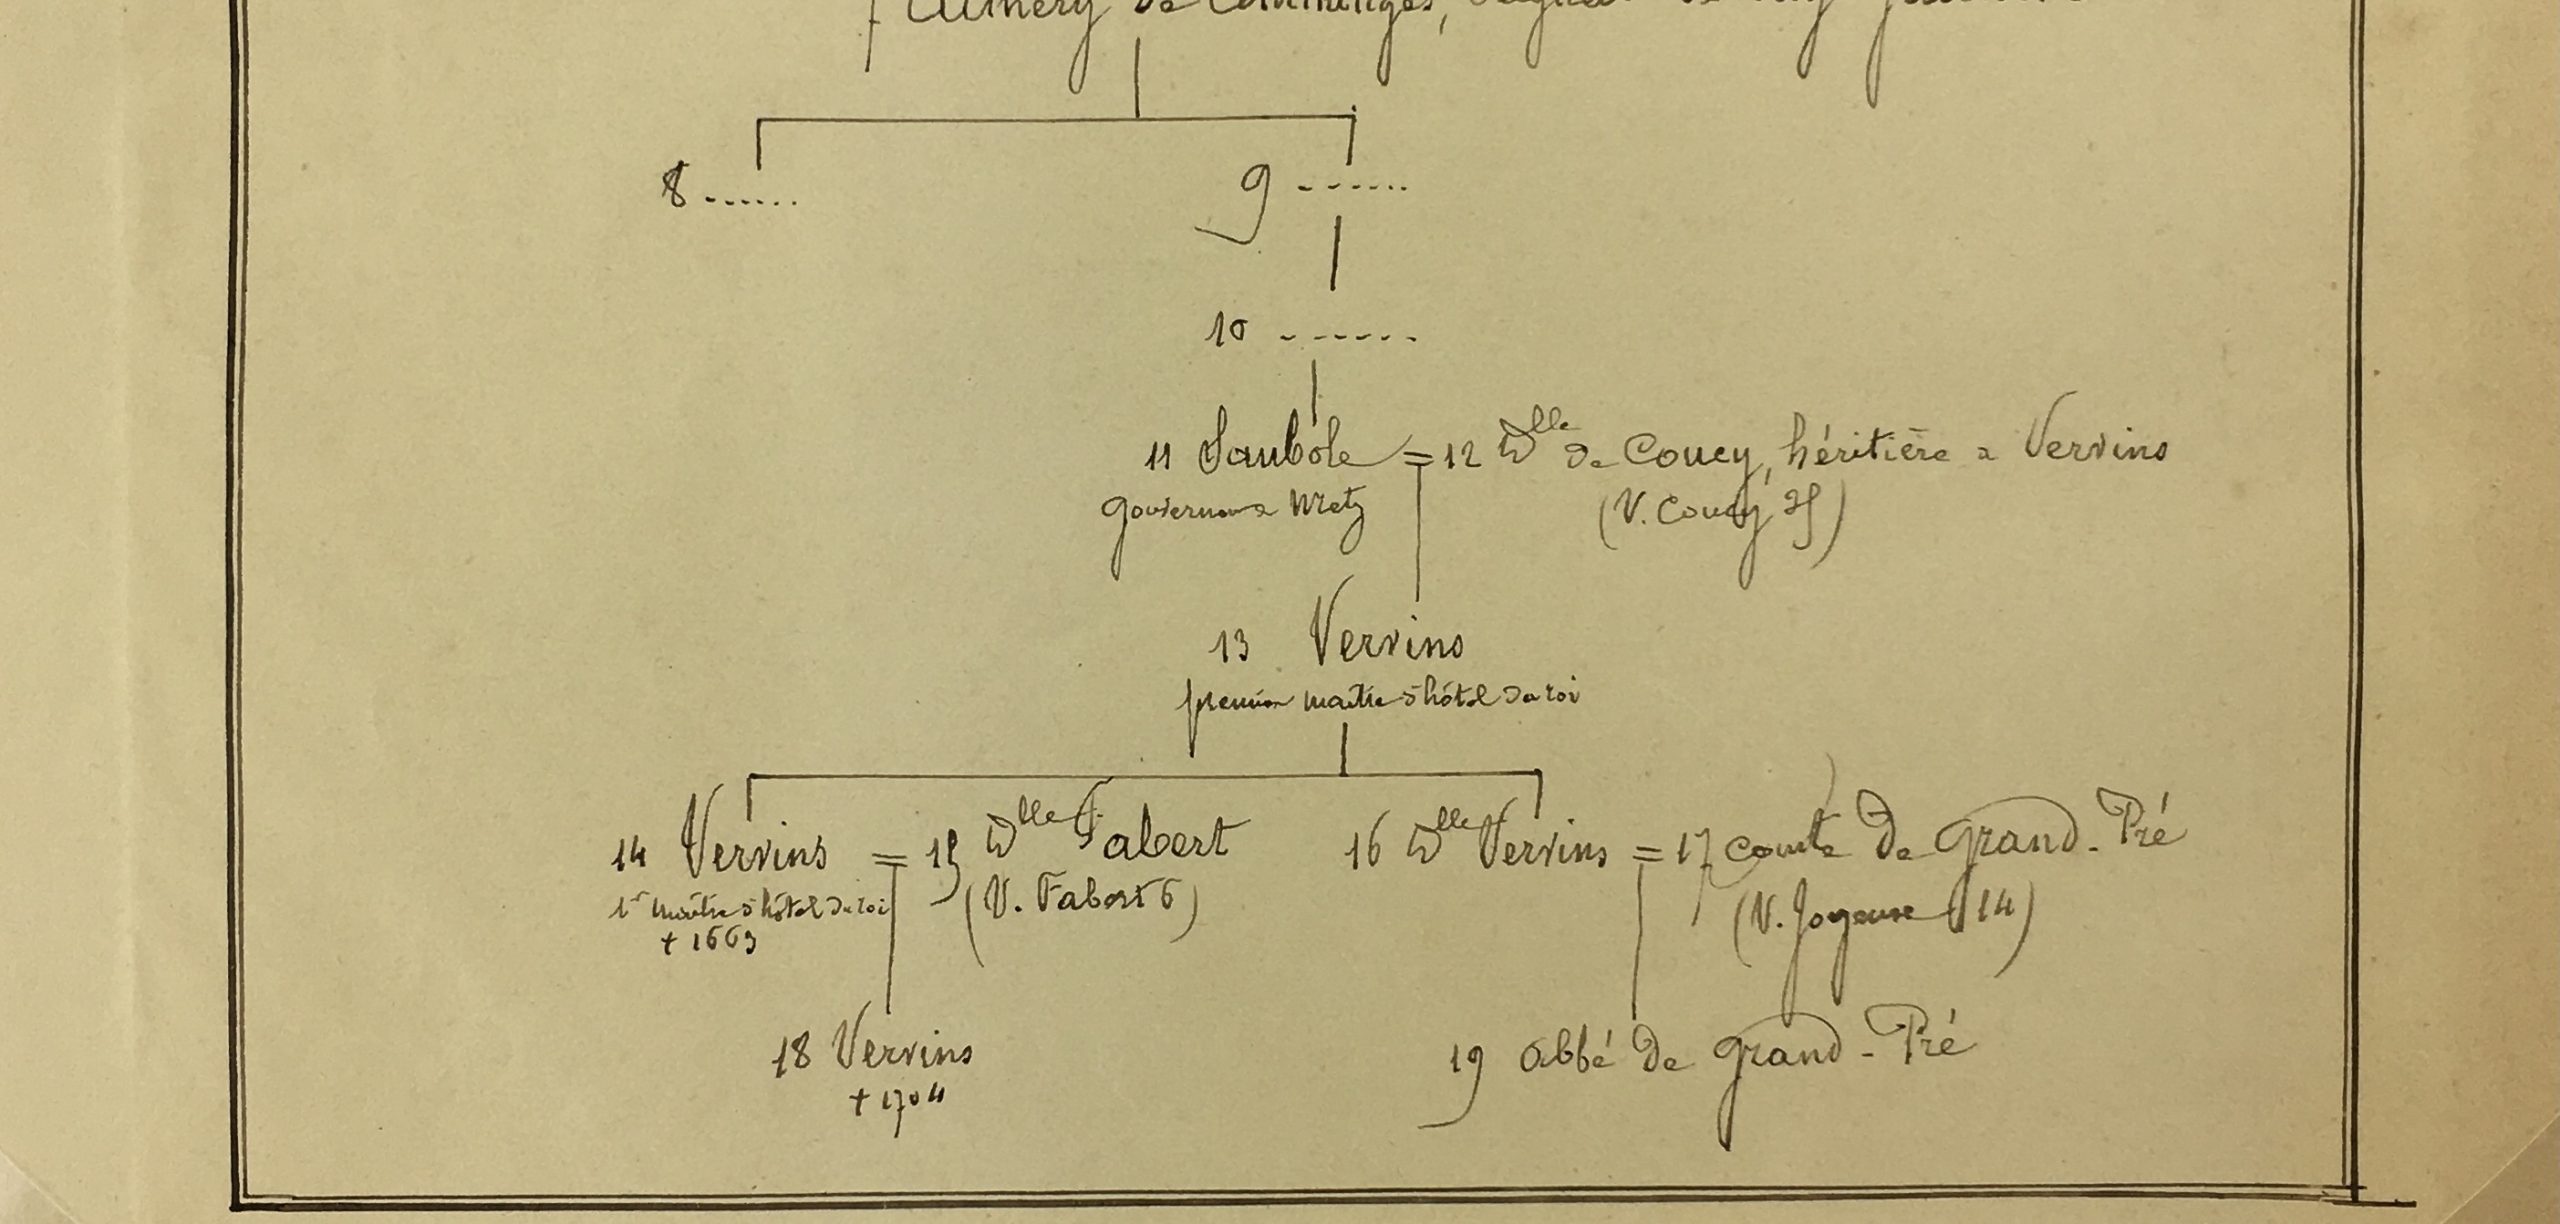 7 Aimery de Comminges, seigneur de Puy
8 ......
9 .......
10 .......
11 Saubole = 12 Dlle de Coucy, héritière de Vervins
gouverneur de Metz
(V. Coucy 25)
13 Vervins
premier maître d'hôtel du roi
14 Vervins = 15 Dlle Fabert
16 Dlle Vervins = 17 comte de Grand-Pré
1r maître d'hôtel du roi
(V. Fabert 6)
(V. Joyeuse 14)
+ 1663
18 Vervins
19 abbé de Grand-Pré
+ 1704